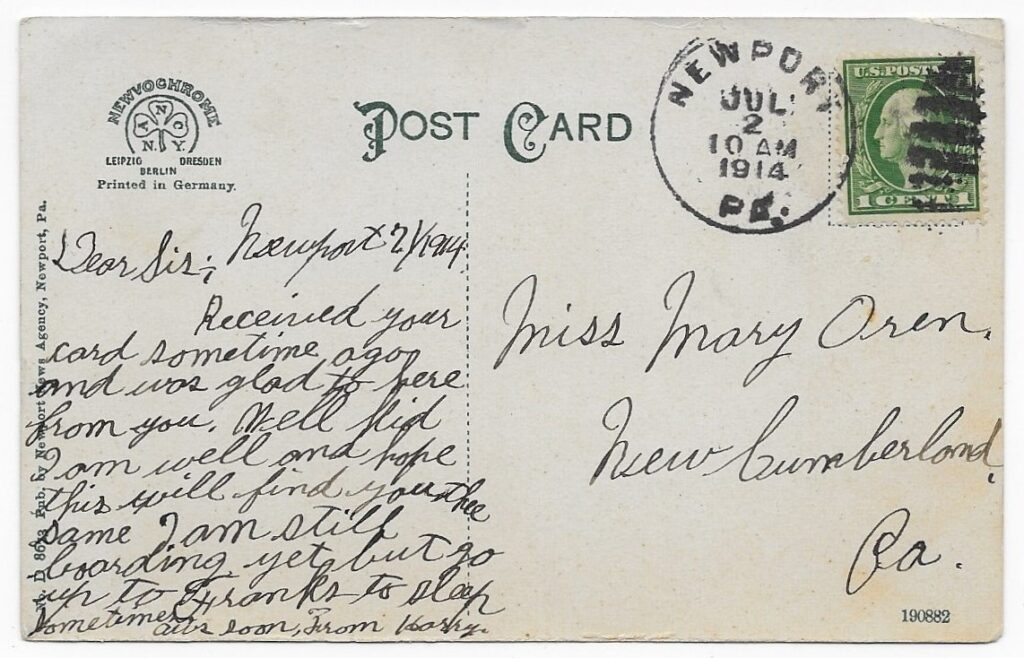 NEWVOCHROME
A N C
N. Y.
LEIPZIG DRESDEN
BERLIN
Printed in Germany.
POST CARD
NEWPORT
JUL
2
10 AM
1914
PA.
U.S. POST
1 CENT 1
No. D 8693 Pub. by Newport News Agency, Newport, Pa.
Newport 2/1914
Dear Sir;
Received your
card sometime ago
and was glad to here
from you. Well kid
I am well and hope
this will find you the
same I am still
boarding yet but go
up to Franks to sleep
sometimes. soon, From Harry.
Miss Mary Oren,
New Cumberland,
Pa.
190882